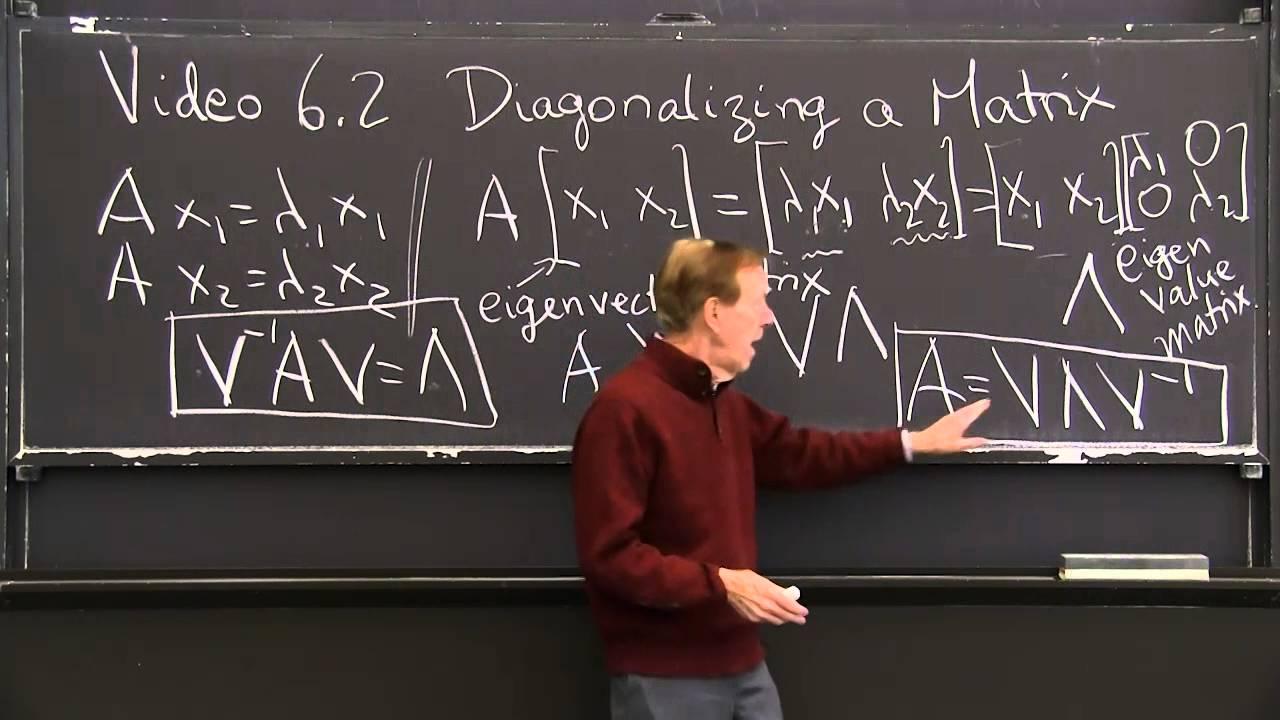 Video 6.2 Diagonalizing a Matrix
A x₁ = λ₁x₁
A x₂ = λ₂x₂
V⁻¹AV = Λ
A [x₁ x₂] = [λ₁x₁ λ₂x₂] = [x₁ x₂] [λ₁ 0
0 λ₂]
Λ eigen
value
matrix.
A
V Λ
A = V Λ V⁻¹